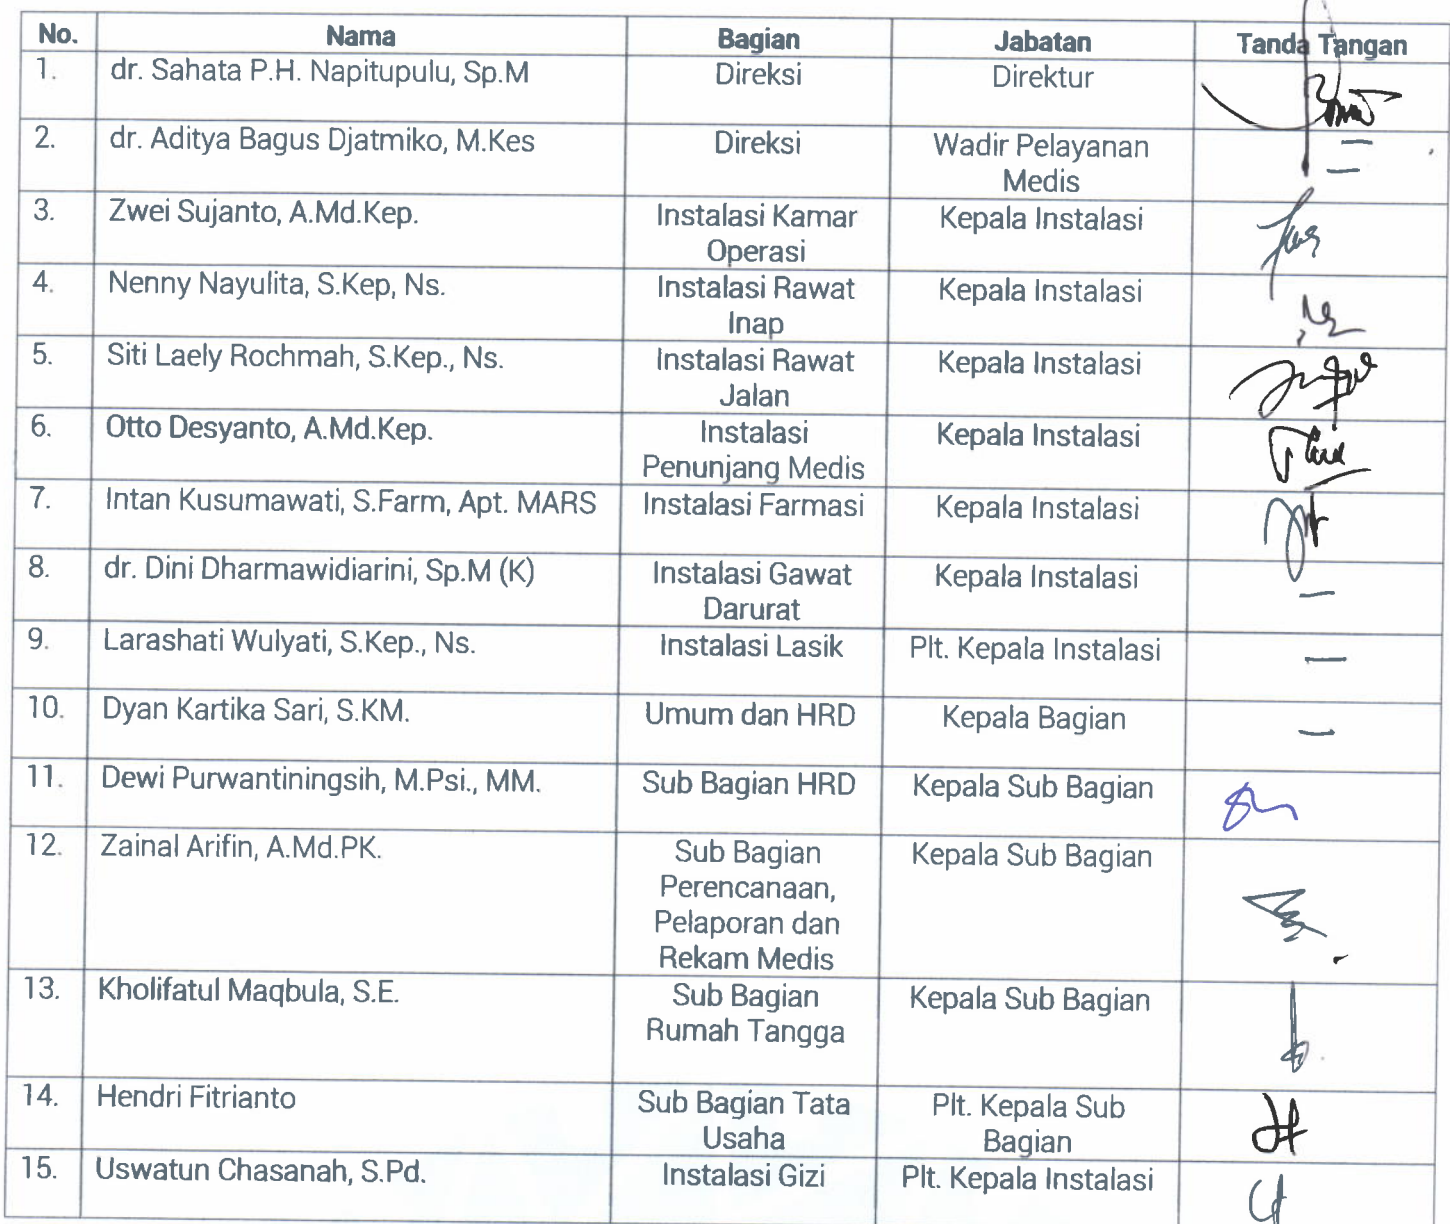 No. Nama Bagian Jabatan Tanda Tangan
1. dr. Sahata P.H. Napitupulu, Sp.M Direksi Direktur
2. dr. Aditya Bagus Djatmiko, M.Kes Direksi Wadir Pelayanan
Medis
3. Zwei Sujanto, A.Md.Kep. Instalasi Kamar Kepala Instalasi
Operasi
4. Nenny Nayulita, S.Kep, Ns. Instalasi Rawat Kepala Instalasi
Inap
5. Siti Laely Rochmah, S.Kep., Ns. Instalasi Rawat Kepala Instalasi
Jalan
6. Otto Desyanto, A.Md.Kep. Instalasi Kepala Instalasi
Penunjang Medis
7. Intan Kusumawati, S.Farm, Apt. MARS Instalasi Farmasi Kepala Instalasi
8. dr. Dini Dharmawidiarini, Sp.M (K) Instalasi Gawat Kepala Instalasi
Darurat
9. Larashati Wulyati, S.Kep., Ns. Instalasi Lasik Plt. Kepala Instalasi
10. Dyan Kartika Sari, S.KM. Umum dan HRD Kepala Bagian
11. Dewi Purwantiningsih, M.Psi., MM. Sub Bagian HRD Kepala Sub Bagian
12. Zainal Arifin, A.Md.PK. Sub Bagian Kepala Sub Bagian
Perencanaan,
Pelaporan dan
Rekam Medis
13. Kholifatul Maqbula, S.E. Sub Bagian Kepala Sub Bagian
Rumah Tangga
14. Hendri Fitrianto Sub Bagian Tata Plt. Kepala Sub
Usaha Bagian
15. Uswatun Chasanah, S.Pd. Instalasi Gizi Plt. Kepala Instalasi